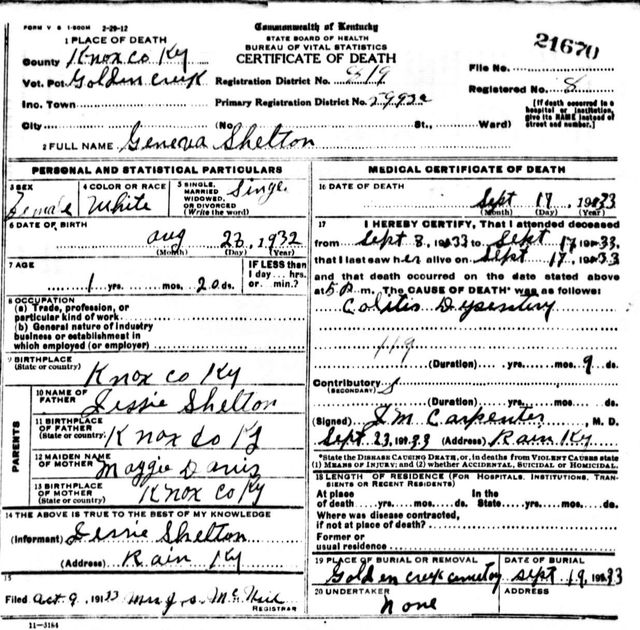 FORM V S 1-500M 2-29-12
Commonwealth of Kentucky
STATE BOARD OF HEALTH
BUREAU OF VITAL STATISTICS
CERTIFICATE OF DEATH
21670
1 PLACE OF DEATH
County Knox co Ky
Vot. Pct Golden creek Registration District No. 819
File No.
Inc. Town Primary Registration District No.
Registered No. 8
City (No. St., Ward)
[If death occurred in a hospital or institution, give its NAME instead of street and number.]
2 FULL NAME Geneva Shelton
PERSONAL AND STATISTICAL PARTICULARS
3 SEX Female
4 COLOR OR RACE White
5 SINGLE, MARRIED WIDOWED, OR DIVORCED (Write the word) Singe
6 DATE OF BIRTH
aug 23, 1932
(Month) (Day) (Year)
7 AGE
1 yrs. mos. 20 ds.
IF LESS than 1 day... hrs. or min.?
8 OCCUPATION
(a) Trade, profession, or particular kind of work
(b) General nature of industry business or establishment in which employed (or employer)
9 BIRTHPLACE (State or country) Knox co Ky
PARENTS
10 NAME OF FATHER Jessie Shelton
11 BIRTHPLACE OF FATHER (State or country) Knox Co Ky
12 MAIDEN NAME OF MOTHER Maggie Davis
13 BIRTHPLACE OF MOTHER (State or country) Knox co Ky
14 THE ABOVE IS TRUE TO THE BEST OF MY KNOWLEDGE
(Informant) Jessie Shelton
(Address) Rain Ky
15
Filed Oct 9, 1933 Mrs J. S. McNeil
REGISTRAR
11-3184
MEDICAL CERTIFICATE OF DEATH
16 DATE OF DEATH
Sept 17, 1933
(Month) (Day) (Year)
17 I HEREBY CERTIFY, That I attended deceased
from Sept 8, 1933 to Sept 17 1933,
that I last saw her alive on Sept 17, 1933
and that death occurred on the date stated above
at 5 P m. The CAUSE OF DEATH* was as follows:
Colitis Dysentery
119
(Duration) yrs. mos. 9 ds.
Contributory
(SECONDARY)
(Duration) yrs. mos. ds.
(Signed) J M Carpenter, M. D.
Sept. 23, 1933 (Address) Rain Ky
*State the DISEASE CAUSING DEATH, or, in deaths from VIOLENT CAUSES state (1) MEANS OF INJURY; and (2) whether ACCIDENTAL, SUICIDAL or HOMICIDAL.
18 LENGTH OF RESIDENCE (FOR HOSPITALS, INSTITUTIONS, TRANSIENTS OR RECENT RESIDENTS)
At place of death yrs. mos. ds. In the State yrs. mos. ds.
Where was disease contracted, if not at place of death?
Former or usual residence
19 PLACE OF BURIAL OR REMOVAL Golden creek cemetery
DATE OF BURIAL Sept 19, 1933
20 UNDERTAKER none
ADDRESS